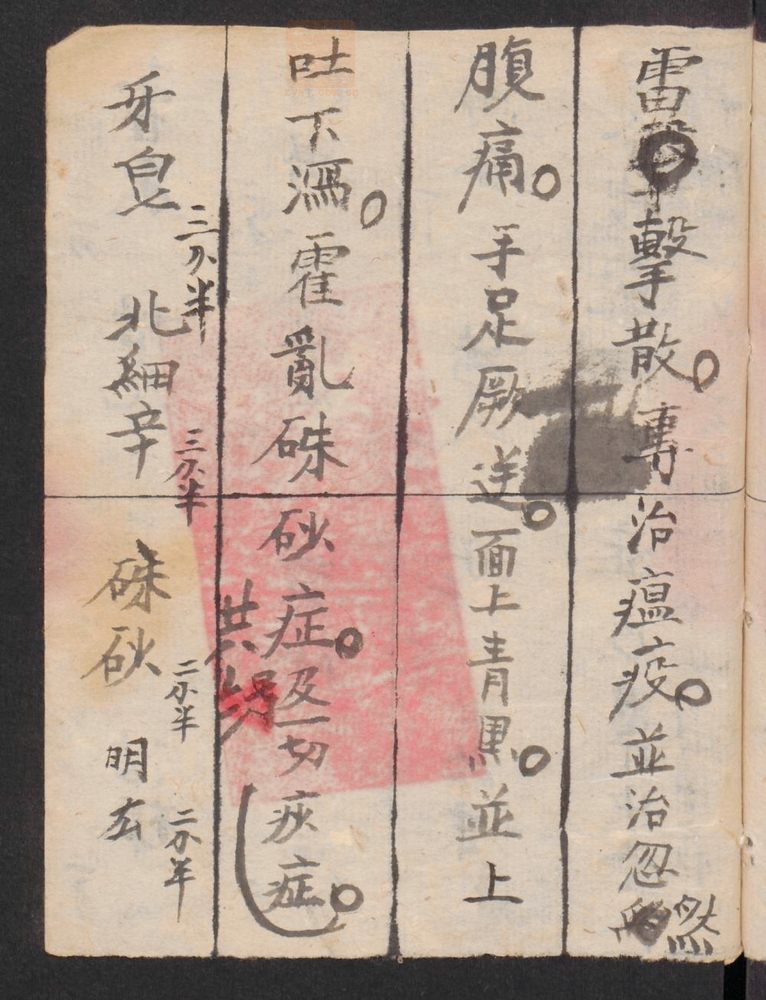 雷擊散。專治瘟疫。並治忽然
腹痛。手足厥逆。面上青黑。並上
吐下瀉。霍亂硃砂症。及一切痰症。
共
牙皂 三分半 北細辛 三分半 硃砂 二分半 明左 二分半